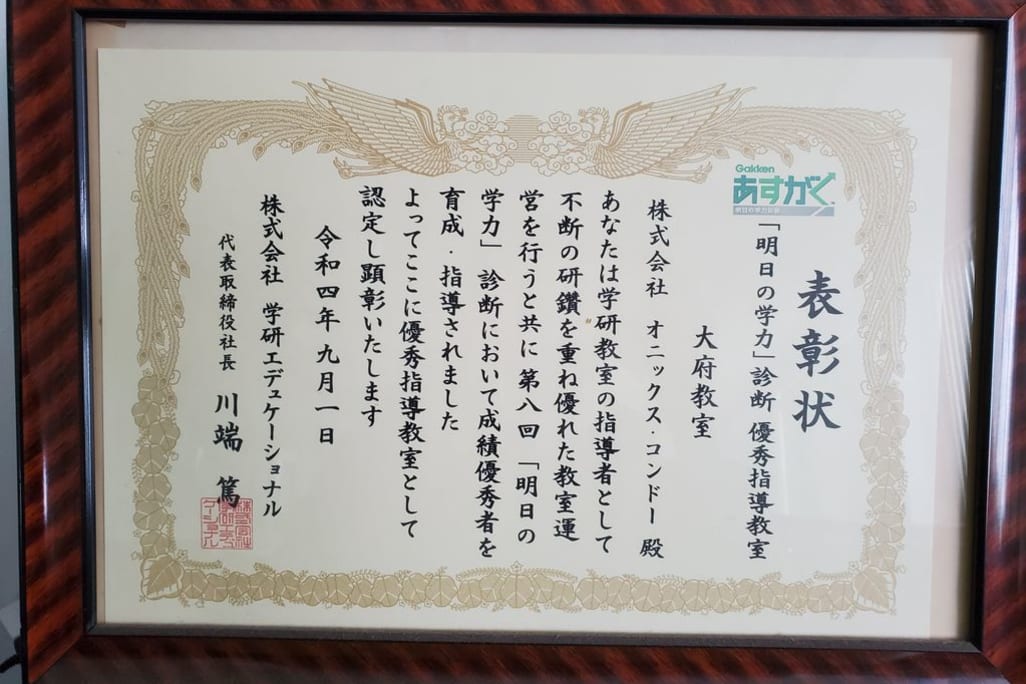 表彰状
Gakken
あすがく
「明日の学力」診断 優秀指導教室
大府教室
株式会社 オニックス・コンドー 殿
あなたは学研教室の指導者として
不断の研鑽を重ね優れた教室運
営を行うと共に第八回「明日の
学力」診断において成績優秀者を
育成・指導されました
よってここに優秀指導教室として
認定し顕彰いたします
令和四年九月一日
株式会社 学研エデュケーショナル
代表取締役社長 川端 篤